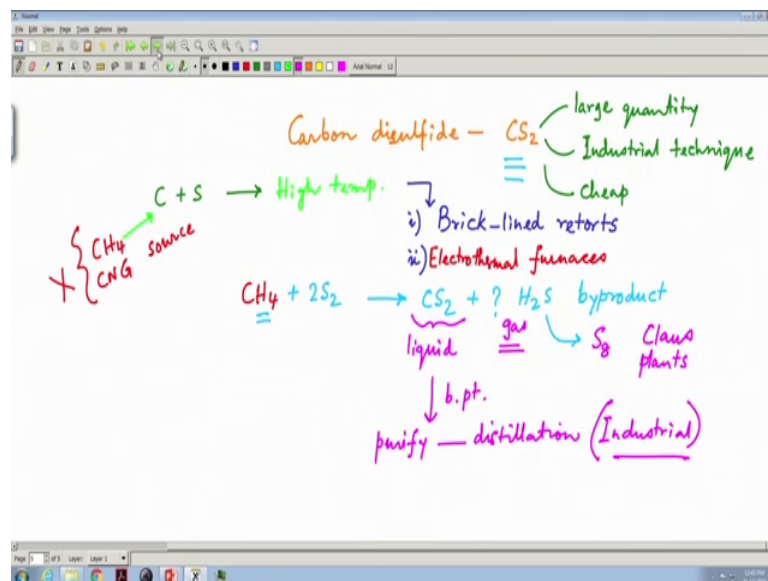 Journal
File Edit View Page Tools Options Help
Arial Normal 12
Carbon disulfide — CS2
large quantity
Industrial technique
cheap
C + S → High temp.
CH4
CNG
source
X
i) Brick-lined retorts
ii) Electrothermal furnaces
CH4 + 2S2 → CS2 + ? H2S byproduct
liquid gas S8 Claus
plants
b.pt.
purify — distillation (Industrial)
Page 5 of 5 Layer: Layer 1